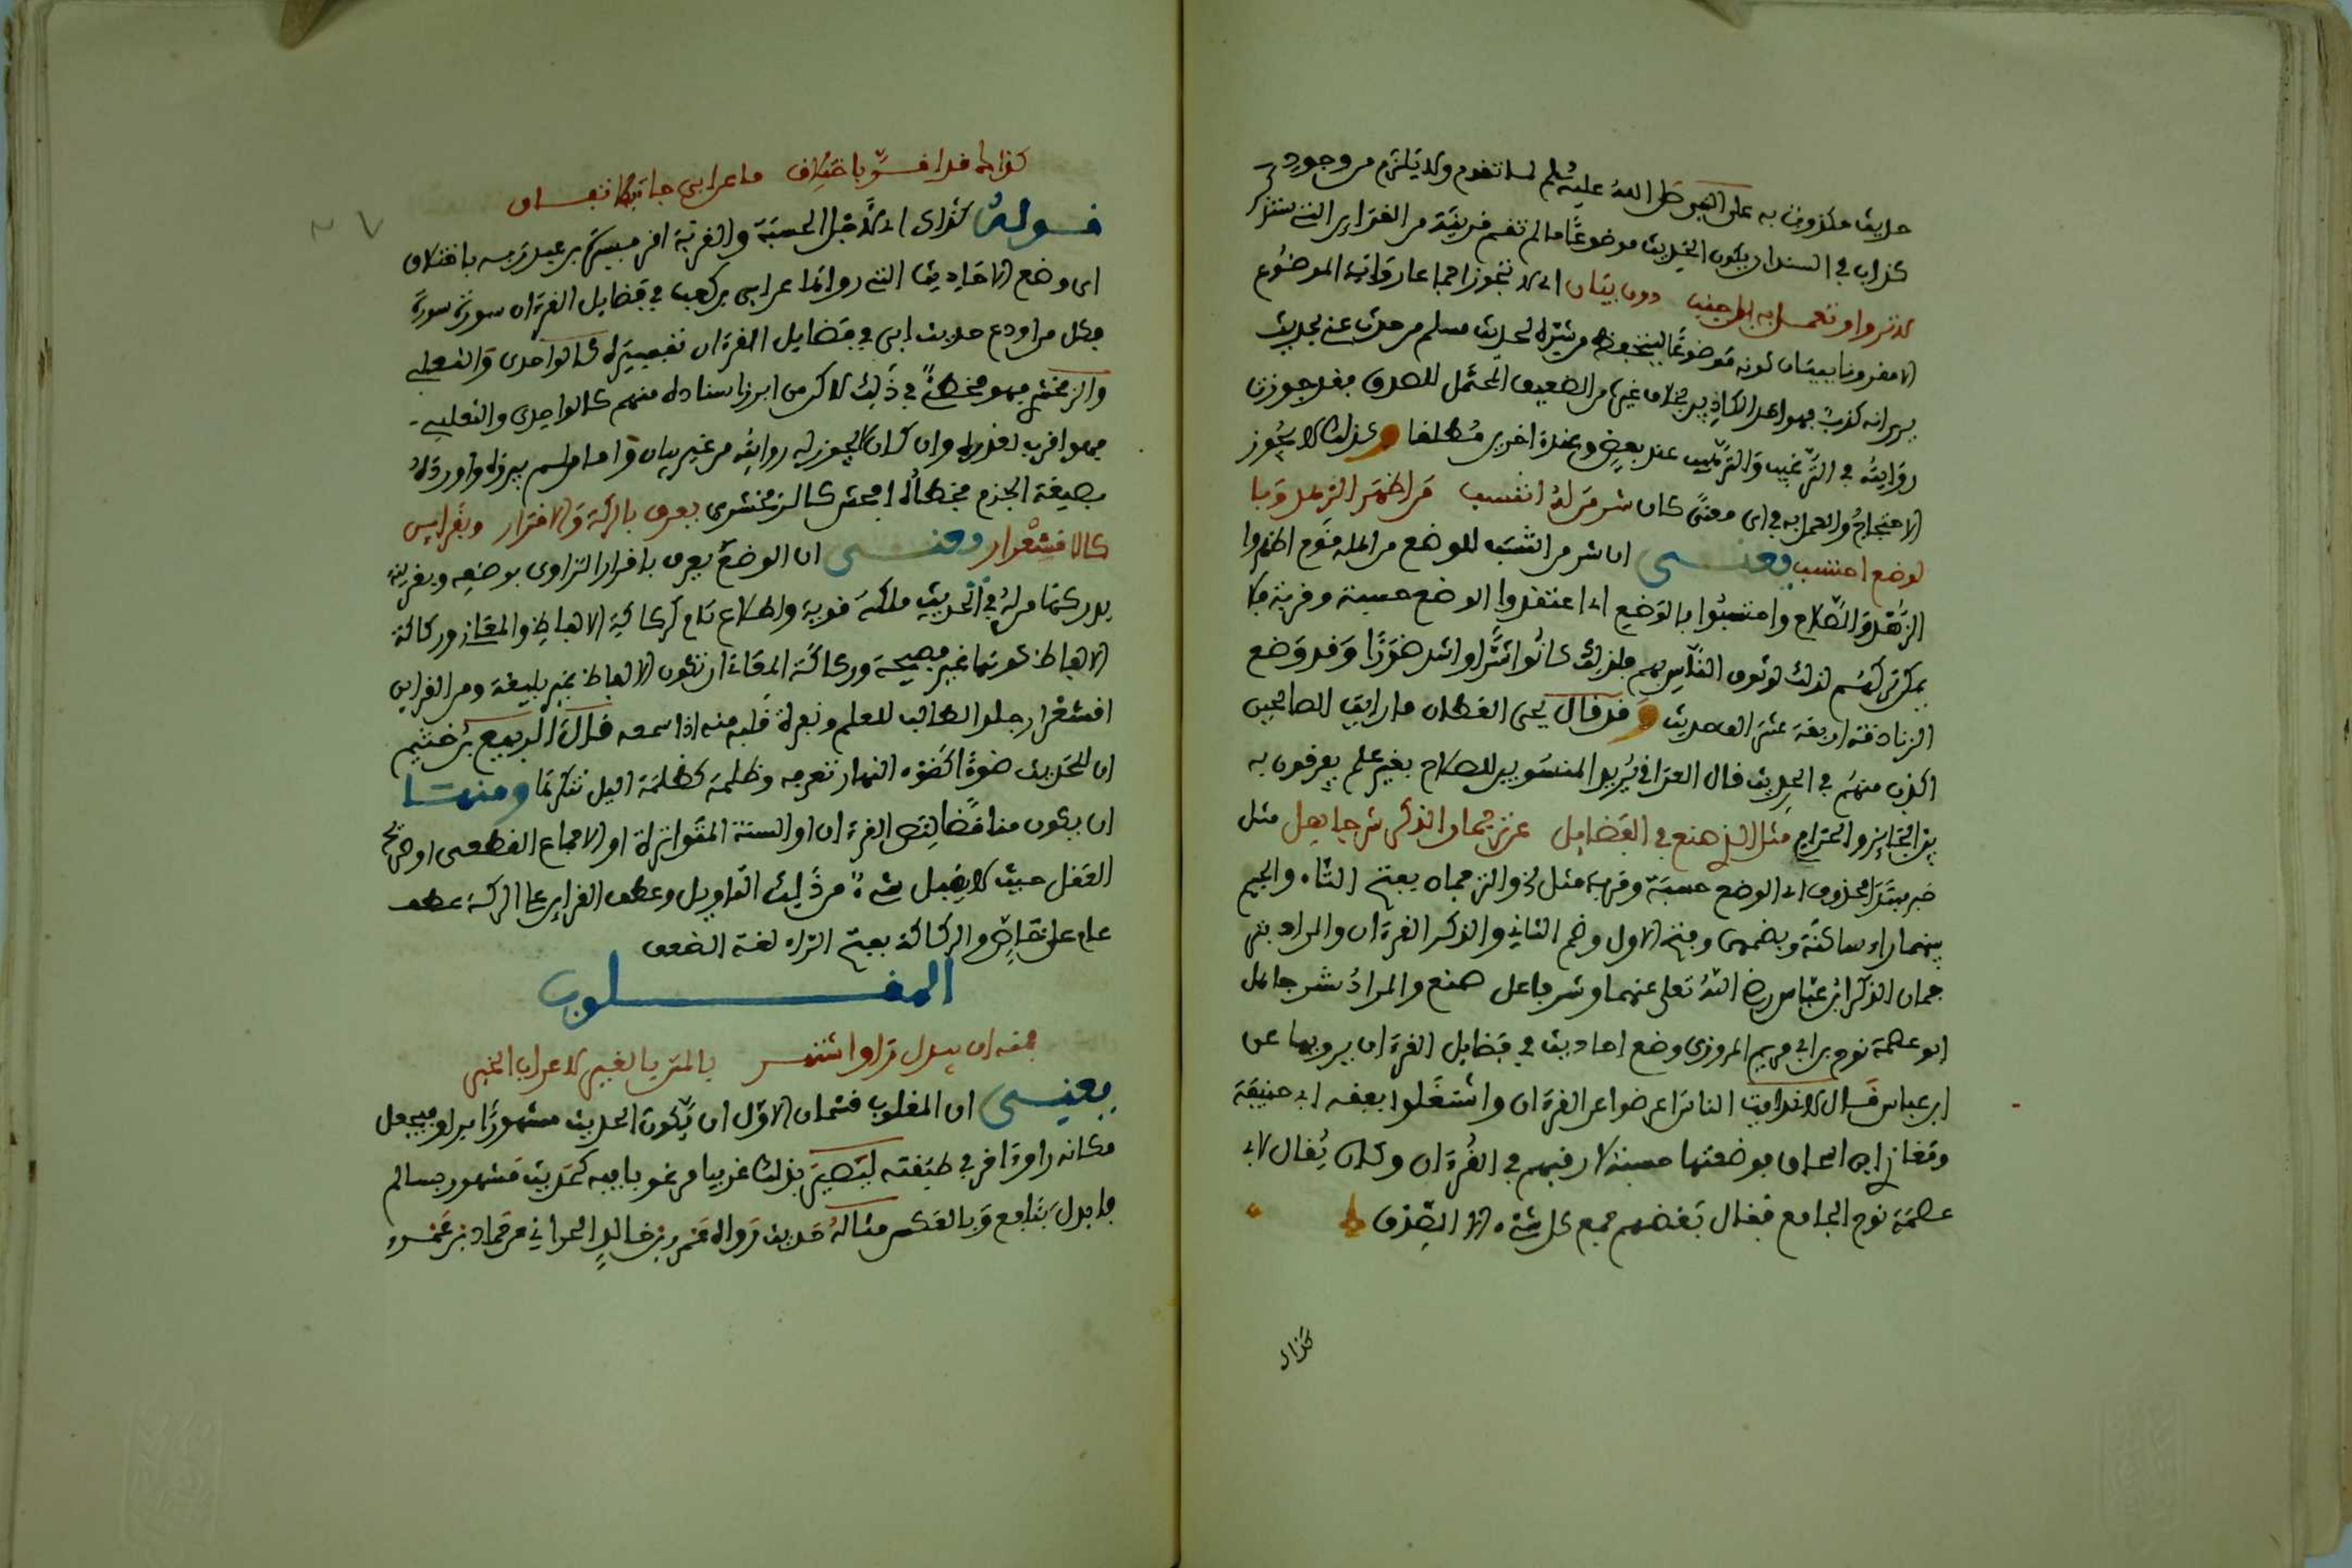 حديث مكذوب به على النبي صلى الله عليه وسلم لما تقدم ولا يلزم من وجود
كذاب في السند ان يكون الحديث موضوعا ما لم تقم قرينة من القراين التي ستذكر
لا تروا وتعمل به بل جنب دون بيان اي لا تجوز اجماعا رواية الموضوع
الا مقرونا ببيان كونه موضوعا ليتحفظ من شره لحديث مسلم من حدث عني بحديث
يرى انه كذب فهو احد الكاذبين بخلاف غيره من الضعيف المحتمل للصدق فقد جوزت
روايته في الترغيب والترهيب عند بعض وعند اخرين مطلقا وكذلك لا يجوز
الاحتجاج والعمل به في اي معنى كان شر من له انتسب من اظهر الزهد وبا
لوضع احتسب يعنى ان شر من انتسب للوضع من الملة قوم اظهروا
الزهد والصلاح واحتسبوا بالوضع اي اعتقدوا الوضع حسبة وقربة فلا
يمكن تركهم لذلك لوثوق الناس بهم فلذلك كانوا شرا واشد ضررا وقد وضع
الزنادقة اربعة عشر الف حديث وقد قال يحيى القطان ما رايت الصالحين
اكذب منهم في الحديث قال العراقي يريد المنسوبين للصلاح بغير علم يفرقون به
بين الجايز والحرام مثل الذ صنع في الفضايل عن ترجمان الذكر شر جاعل مثل
خبر مبتدا محذوف اي الوضع حسبة وقربة مثل الخ والترجمان بفتح التاء والجيم
بينهما راء ساكنة وبضمهن وفتح الاول وضم الثاني والذكر القرءان والمراد بتر
جمان الذكر ابن عباس رضي الله تعلى عنهما وشر فاعل صنع والمراد بشر جاعل
ابو عصمة نوح بن ابي مريم المروزي وضع احاديث في فضايل القرءان يرويها عن
ابن عباس قال لانه رايت الناس اعرضوا عن القرءان واشتغلوا بفقه ابي حنيفة
ومغازي ابن اسحاق فوضعتها حسبة لارغبهم في القرءان وكان يقال لابي
عصمة نوح الجامع فقال بعضهم جمع كل شيء الا الصدق
كذاك
كذاك قد افتر باختلاف ما عن ابي جا فيها
قوله كذاك اي لاجل الحسبة والقربة افترى ميسرة بن عبد ربه باختلاق
اي وضع الاحاديث التي رواتها عن ابي بن كعب في فضايل القرءان سورة سورة
فكل من اودع حديث ابي في فضايل القرءان تفسيره كالواحدي والثعلبي
والزمخشري فهو مخطئ في ذلك لاكن من ابرز اسناده منهم كالواحدي والثعلبي
فهو اقرب لعذره وان كان لا يجوز له روايته من غير بيان واما من لم يبرزه واورده
بصيغة الجزم فخطؤه افحش كالزمخشري يعرف بالركة والاقرار وبقراين
كالاقشعرار يعنى ان الوضع يعرف باقرار الراوي بوضعه وبقرينة
يدركها من له في الحديث ملكة قوية واطلاع تام كركاكة الالفاظ والمعاني وركاكة
الالفاظ كونها غير فصيحة وركاكة المعاني ان تكون الالفاظ غير بليغة ومن القراين
اقشعرار جلد الطالب للعلم ونفرة قلبه منه اذا سمعه قال الربيع بن خثيم
ان للحديث ضوءا كضوء النهار تعرفه وظلمة كظلمة اليل تنكرها ومنها
ان يكون مناقضا لنص القرءان او السنة المتواترة او الاجماع القطعي او صريح
العقل حيث لا يقبل شيء من ذلك التاويل وعطف القراين على الركة عطف
عام على خاص والركاكة بفتح الراء لغة الضعف
المقلوب
فمنه ان يبدل راو اشتهر بالمتن بالغير لاغراب الخبر
يعنى ان المقلوب قسمان الاول ان يكون الحديث مشهورا براو فيجعل
مكانه راو ءاخر في طبقته ليصير بذلك غريبا مرغوبا فيه كحديث مشهور بسالم
فابدل بنافع وبالعكس مثاله حديث رواه عمرو بن خالد الحراني عن حماد بن عمرو